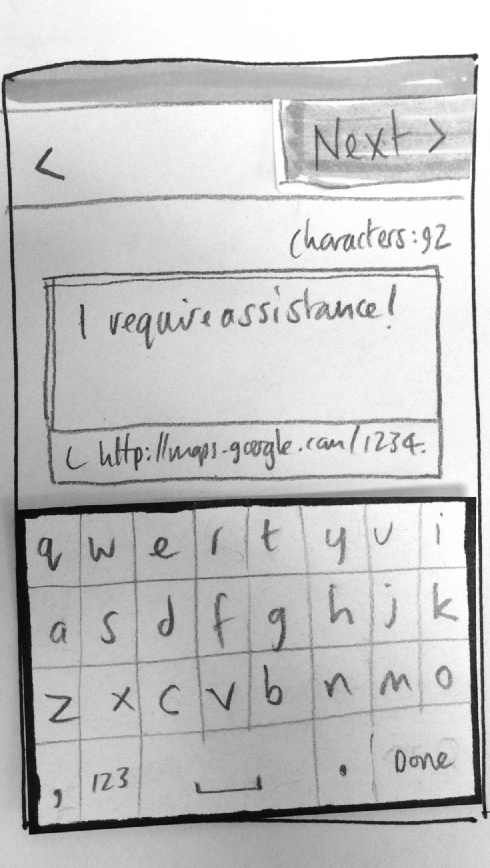 <
Next >
characters:92
I require assistance!
http://maps.google.com/1234.
q w e r t y u i
a s d f g h j k
z x c v b n m o
, 123 . Done